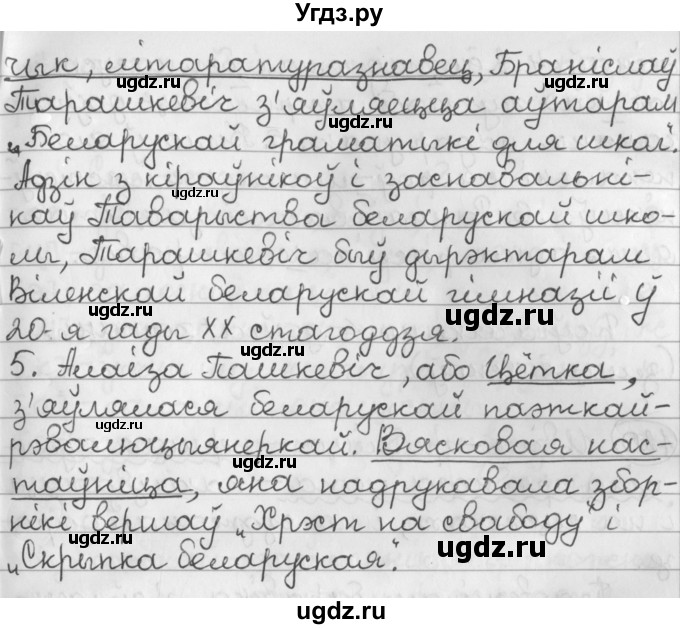 Угдз.ру
чык, літаратуразнавец, Браніслаў
Тарашкевіч з'яўляецца аўтарам
„Беларускай граматыкі для школ".
Адзін з кіраўнікоў і заснавальні-
каў Таварыства беларускай шко-
лы, Тарашкевіч быў дырэктарам
Віленскай беларускай гімназіі ў
20-я гады XX стагоддзя.
5. Алаіза Пашкевіч, або Цётка,
з'яўлялася беларускай паэткай-
рэвалюцыянеркай. Вясковая нас-
таўніца, яна надрукавала збор-
нікі вершаў „Хрэст на свабоду" і
„Скрыпка беларуская".
ugdz.ru